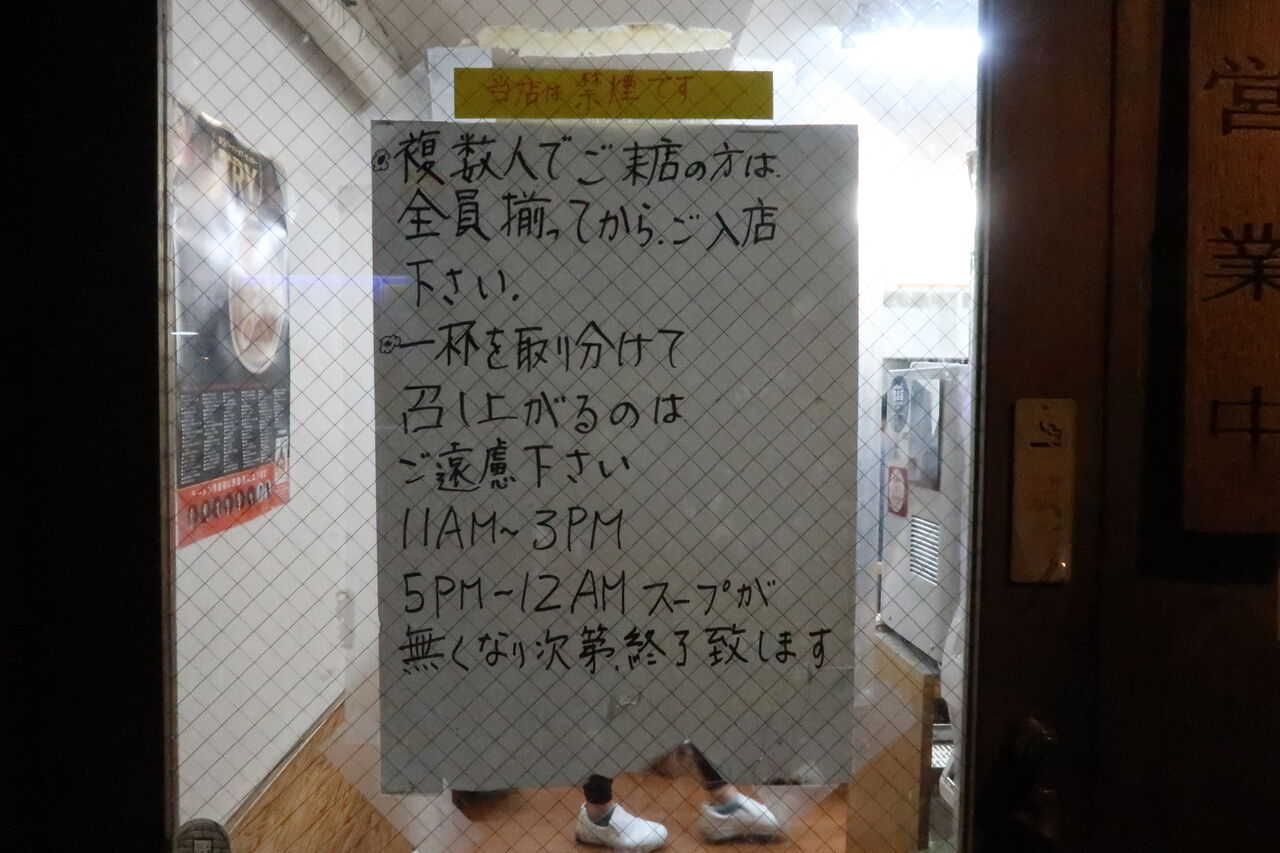 当店は禁煙です
複数人でご来店の方は
全員揃ってから、ご入店
下さい。
一杯を取り分けて
召し上がるのは
ご遠慮下さい
11AM~3PM
5PM~12AM スープが
無くなり次第、終了致します
営業中
引